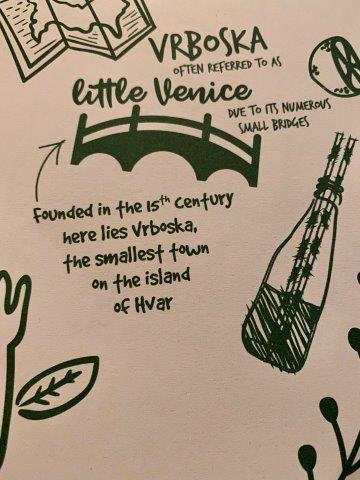 VRBOSKA
OFTEN REFERRED TO AS
little Venice
DUE TO ITS NUMEROUS
SMALL BRIDGES
Founded in the 15th Century
here lies Vrboska,
the smallest town
on the island
of Hvar